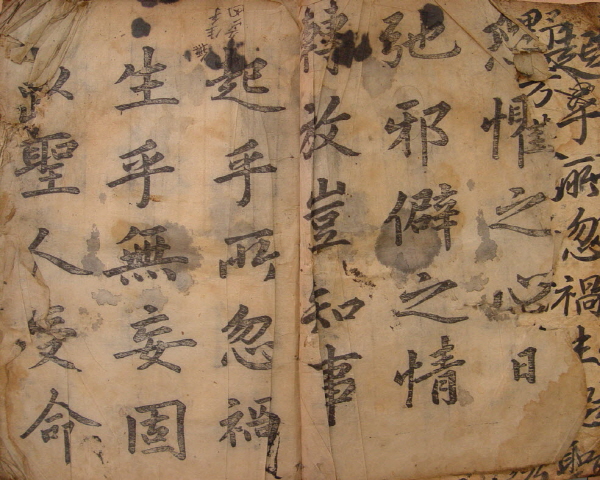 起事所忽禍生無妄
懼之心日
弛邪僻之情
轉放豈知事
起乎所忽禍
生乎無妄固
以聖人受命